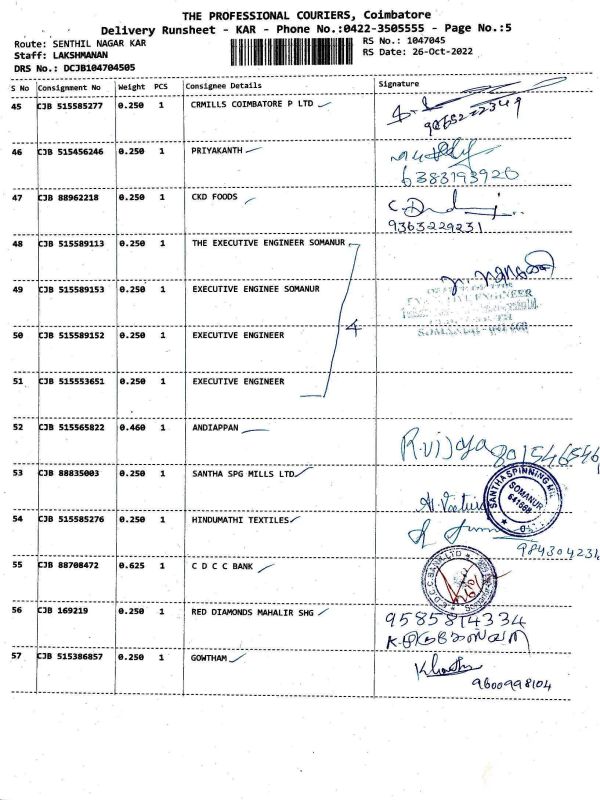 THE PROFESSIONAL COURIERS, Coimbatore
Delivery Runsheet - KAR - Phone No.:0422-3505555 - Page No.:5
Route: SENTHIL NAGAR KAR
RS No.: 1047045
Staff: LAKSHMANAN
RS Date: 26-Oct-2022
DRS No.: DCJB104704505
S No Consignment No Weight PCS Consignee Details Signature
45 CJB 515585277 0.250 1 CRMILLS COIMBATORE P LTD
46 CJB 515456246 0.250 1 PRIYAKANTH
6383193920
47 CJB 88962218 0.250 1 CKD FOODS
9363229231
48 CJB 515589113 0.250 1 THE EXECUTIVE ENGINEER SOMANUR
49 CJB 515589153 0.250 1 EXECUTIVE ENGINEE SOMANUR
EXECUTIVE ENGINEER
4
50 CJB 515589152 0.250 1 EXECUTIVE ENGINEER
51 CJB 515553651 0.250 1 EXECUTIVE ENGINEER
52 CJB 515565822 0.460 1 ANDIAPPAN
R.vijaya
53 CJB 88835003 0.250 1 SANTHA SPG MILLS LTD
SANTHA SPINNING MIL
SOMANUR
641668
54 CJB 515585276 0.250 1 HINDUMATHI TEXTILES
984304231
55 CJB 88708472 0.625 1 C D C C BANK
C.D.C.C. BANK LTD
56 CJB 169219 0.250 1 RED DIAMONDS MAHALIR SHG
9585814334
57 CJB 515386857 0.250 1 GOWTHAM
9600998104